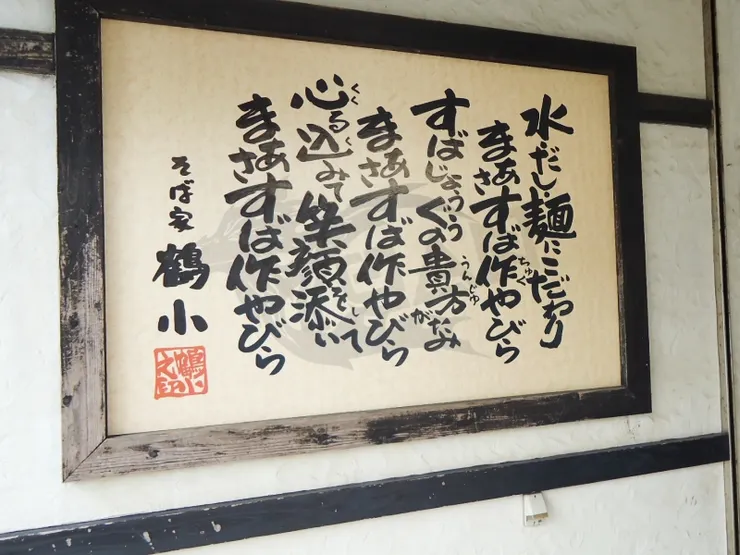 水だし麺にこだわり
まぁさすば作やびら
ちゅく
すばじょううぐの貴方がたみ
うんじゅ
まぁさすば作やびら
心る込みて笑顔添いして
くく
く
まぁさすば作やびら
そば家 鶴小
鶴小之印